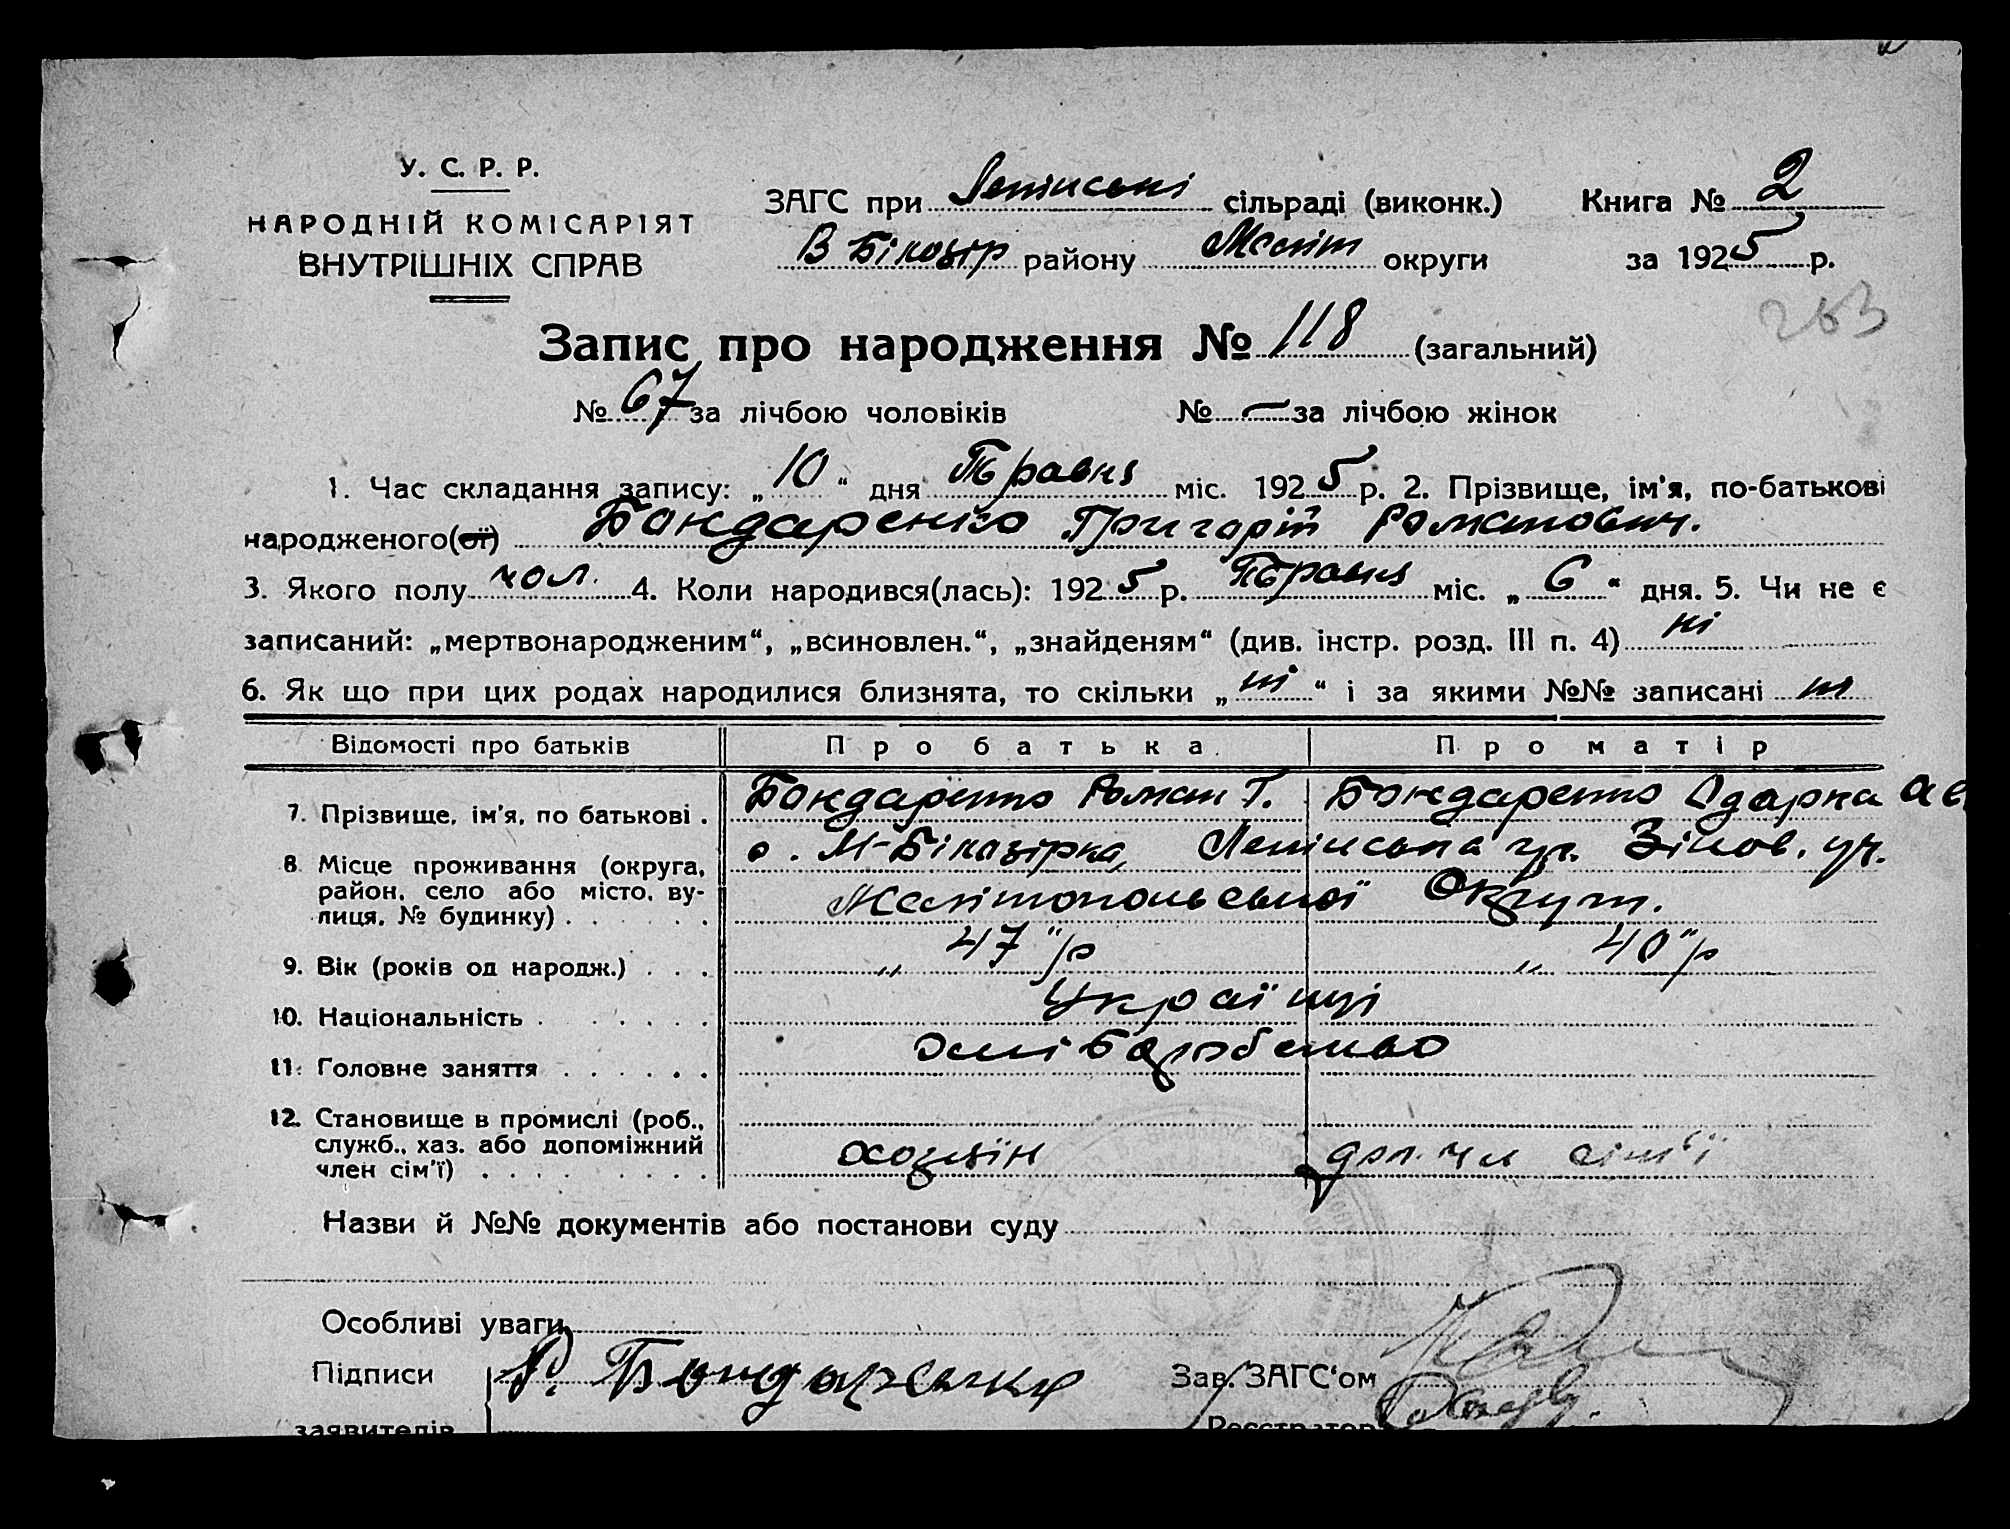 У. С. Р. Р.
НАРОДНІЙ КОМІСАРІЯТ
ВНУТРІШНІХ СПРАВ
ЗАГС при Ленінські сільраді (виконк.) Книга № 2
В Білозір району Меліт округи за 1925 р.
263
Запис про народження № 118 (загальний)
№ 67 за лічбою чоловіків № — за лічбою жінок
1. Час складання запису: „10“ дня Травня міс. 1925 р. 2. Прізвище, ім'я, по-батькові
народженого(ої) Бондаренко Григорій Романович.
3. Якого полу чол. 4. Коли народився(лась): 1925 р. Травня міс. „6“ дня. 5. Чи не є
записаний: „мертвонародженим“, „всиновлен.“, „знайденям“ (див. інстр. розд. III п. 4) ні
6. Як що при цих родах народилися близнята, то скільки „ні“ і за якими №№ записані ні
Відомості про батьків Про батька. Про матір
7. Прізвище, ім'я, по батькові . Бондаренко Роман Г. Бондаренко Одарка Ав.
8. Місце проживання (округа, район, село або місто, вулиця, № будинку) . с. М-Білозірка, Ленінська гр. Зінов. уч.
Мелітопольської Округи.
9. Вік (років од народж.) . . . „ 47"/р „ 40"/р
10. Національність . Українці
11. Головне заняття . Хліборобство
12. Становище в промислі (роб.,
служб., хаз. або допоміжний
член сім'ї) . хозяїн доп. чл сім'ї
Назви й №№ документів або постанови суду
Особливі уваги
Підписи Р. Бондаренко Зав. ЗАГС'ом
заявителів Реєстратор